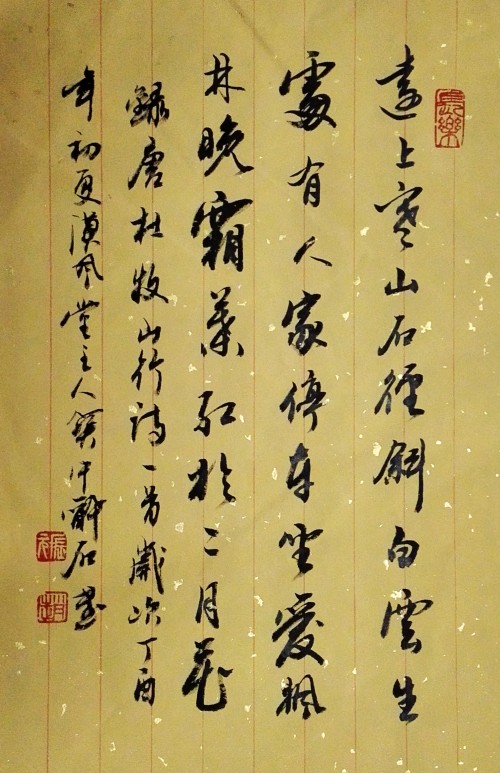 長樂
遠上寒山石徑斜白雲生
處有人家停車坐愛楓
林晚霜葉紅於二月花
錄唐杜牧山行詩一首歲次丁酉
年初夏漢風堂主人賀仲醉石書